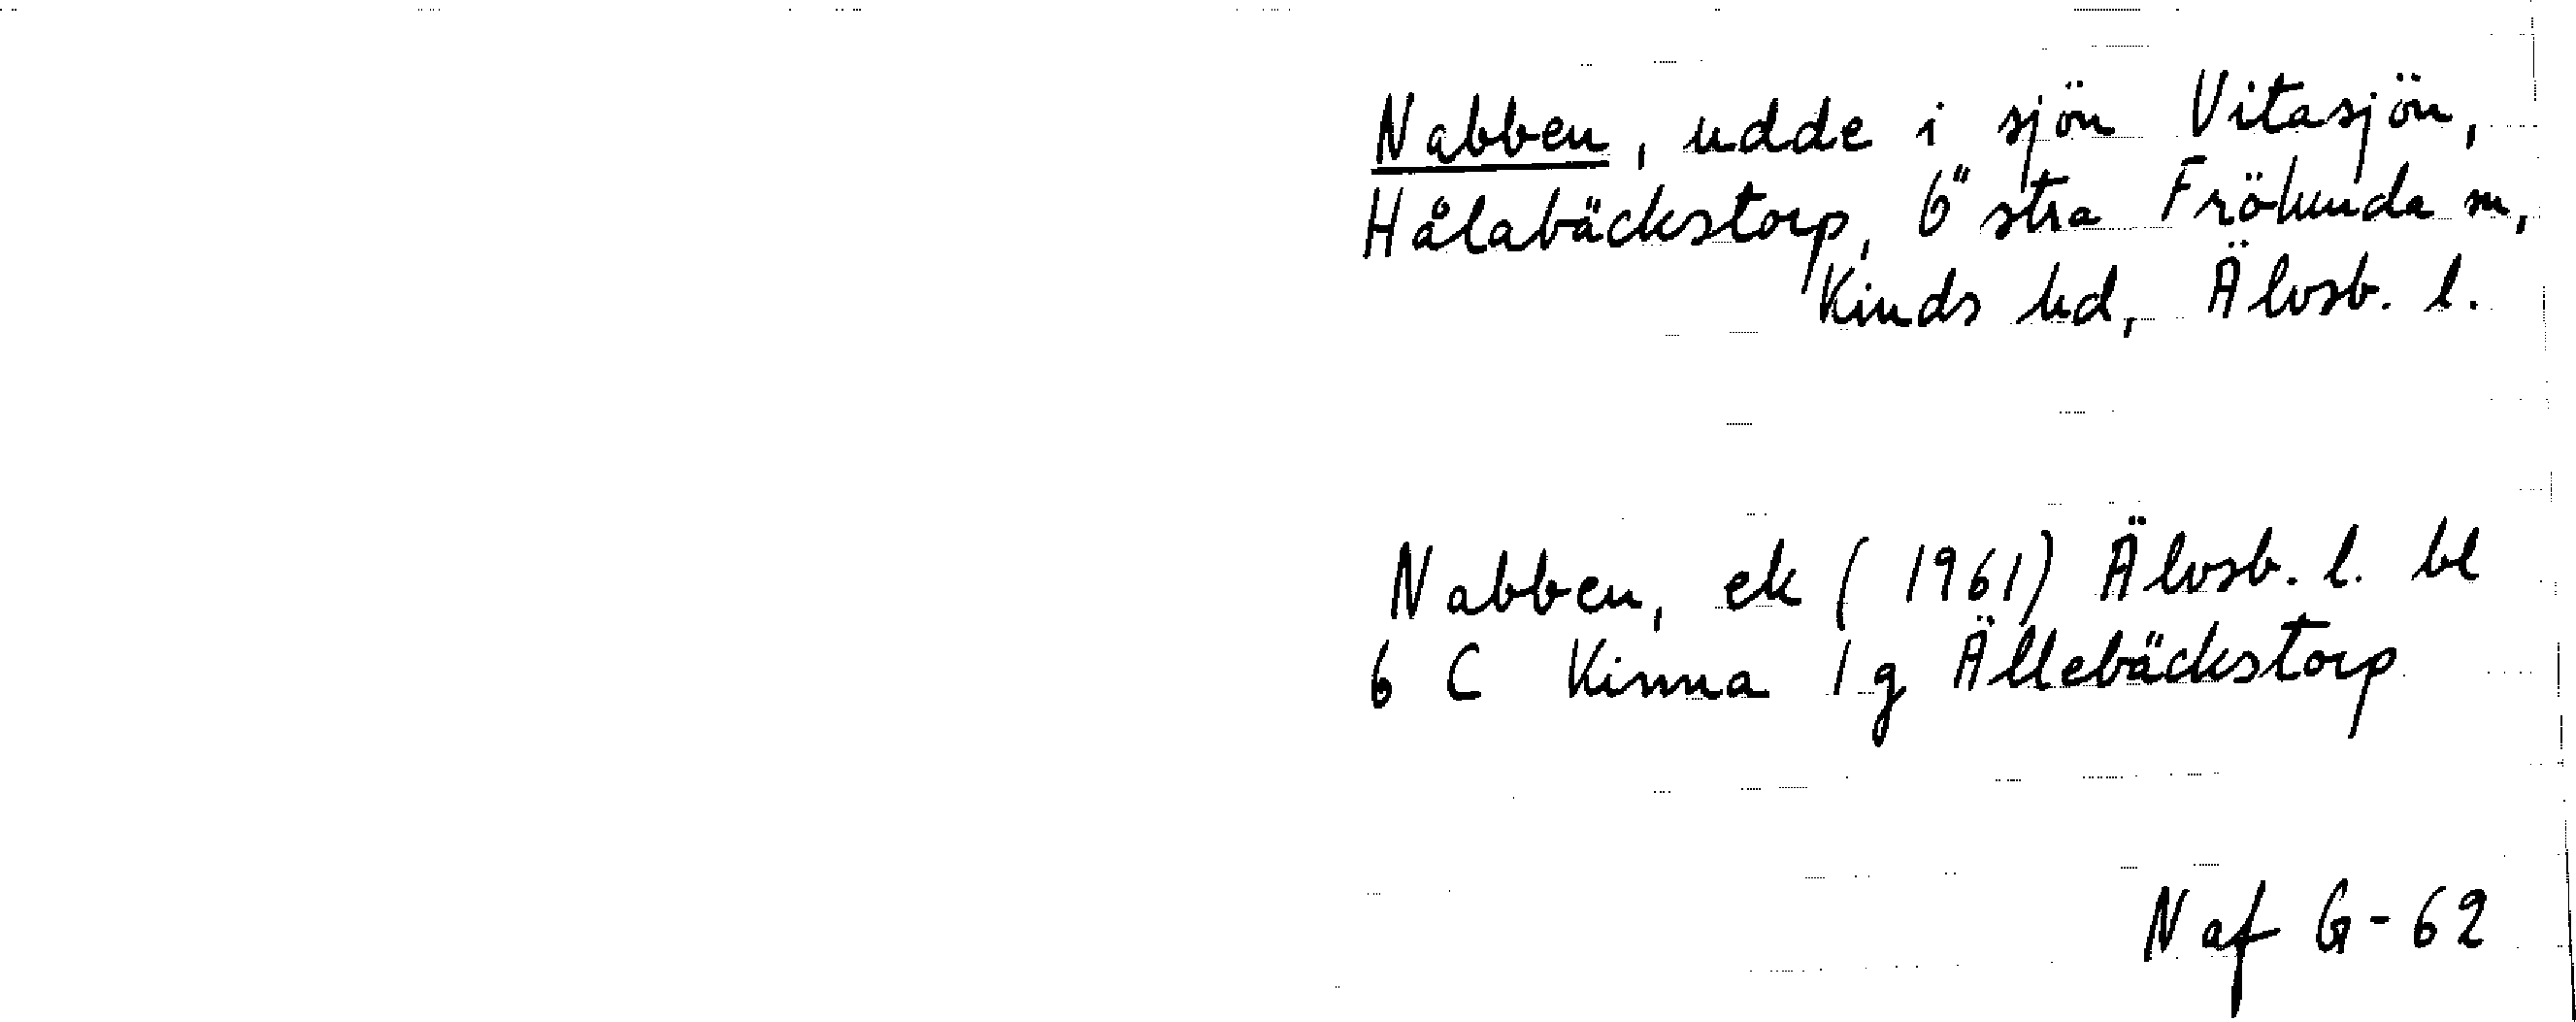 Nabben, udde i sjön Vitasjön,
Hålabäckstorp, Östra Frölunda sn,
Kinds hd, Älvsb. l.
Nabben, ek (1961) Älvsb. l. bl
6 C Kinna 1 g Ällebäckstorp
Naf G-62